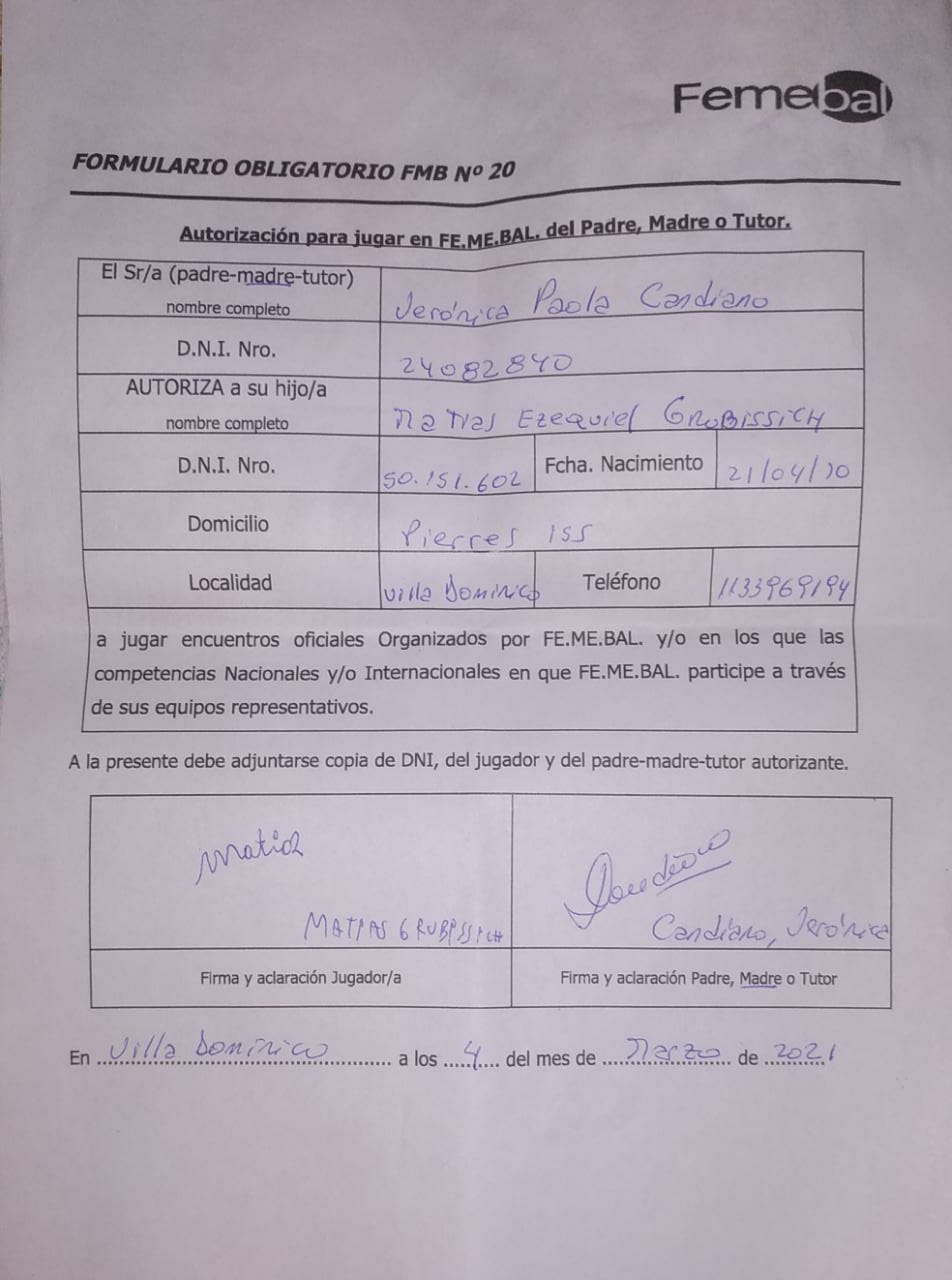 Femebal
FORMULARIO OBLIGATORIO FMB Nº 20
Autorización para jugar en FE.ME.BAL. del Padre, Madre o Tutor.
El Sr/a (padre-madre-tutor)
nombre completo
Verónica Paola Candiano
D.N.I. Nro.
24082840
AUTORIZA a su hijo/a
nombre completo
Matias Ezequiel GRUBISSICH
D.N.I. Nro.
50.151.602
Fcha. Nacimiento
21/04/10
Domicilio
Pierres 155
Localidad
Villa Dominico
Teléfono
1133969194
a jugar encuentros oficiales Organizados por FE.ME.BAL. y/o en los que las
competencias Nacionales y/o Internacionales en que FE.ME.BAL. participe a través
de sus equipos representativos.
A la presente debe adjuntarse copia de DNI, del jugador y del padre-madre-tutor autorizante.
Matias
Candiano
MATIAS GRUBISSICH
Candiano, Verónica
Firma y aclaración Jugador/a
Firma y aclaración Padre, Madre o Tutor
En Villa Dominico a los 4 del mes de Marzo de 2021